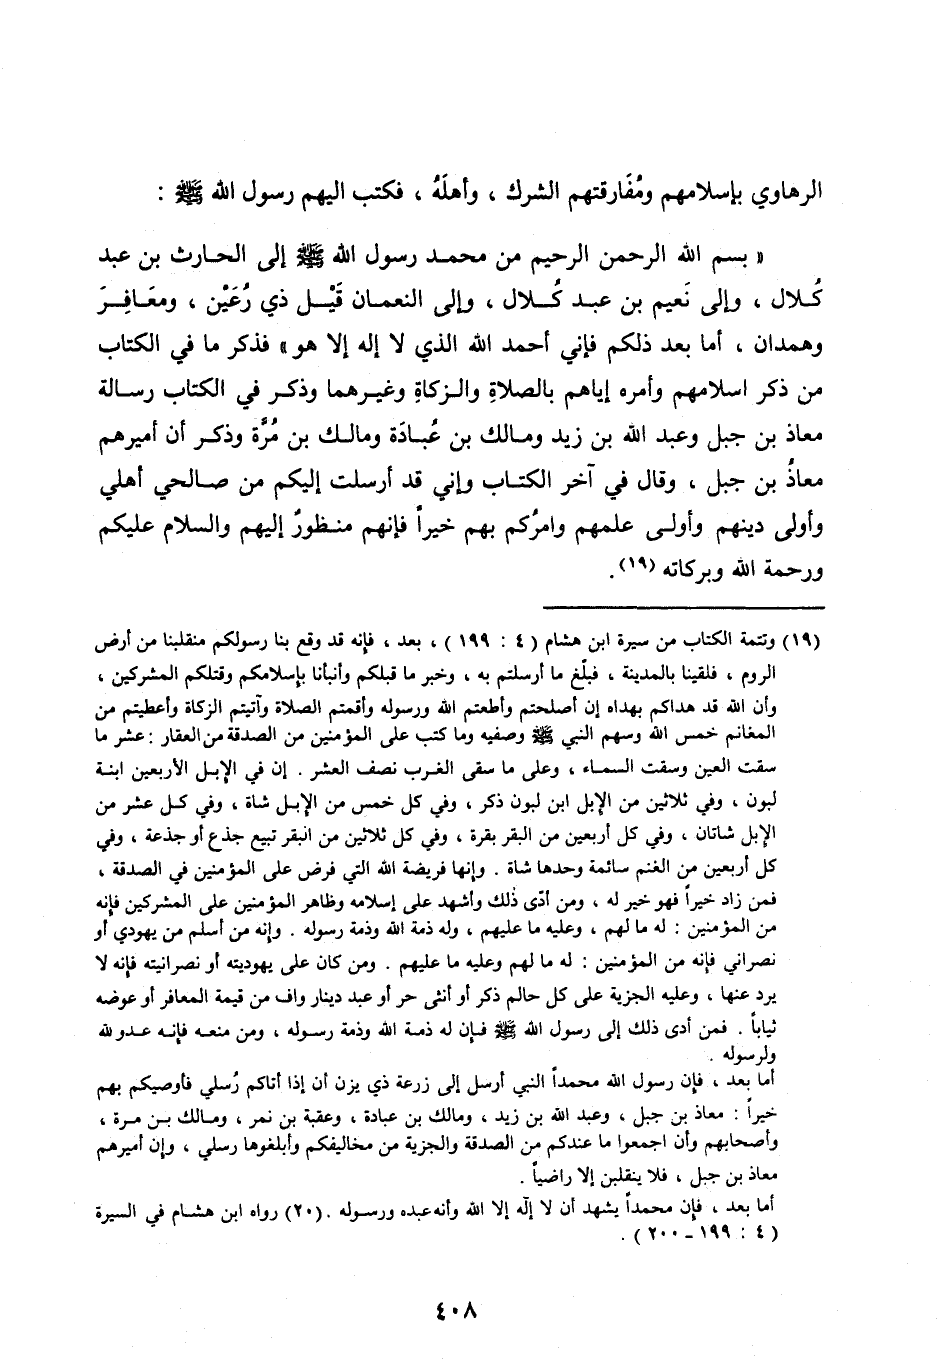 الرهاوي بإسلامهم ومُفَارقتهم الشرك ، وأهلَهُ ، فكتب اليهم رسول الله ﷺ :
« بسم الله الرحمن الرحيم من محمد رسول الله ﷺ إلى الحارث بن عبد
كُلال ، وإلى نَعيم بن عبد كُلال ، وإلى النعمان قَيْل ذي رُعَيْن ، ومعَافِرَ
وهمدان ، أما بعد ذلكم فإني أحمد الله الذي لا إله إلا هو» فذكر ما في الكتاب
من ذكر اسلامهم وأمره إياهم بالصلاةِ والزكاةِ وغيرهما وذكر في الكتاب رسالة
معاذ بن جبل وعبد الله بن زيد ومالك بن عُبادَة ومالك بن مُرَّة وذكر أن أميرهم
معاذُ بن جبل ، وقال في آخر الكتاب وإني قد أرسلت إليكم من صالحي أهلي
وأولى دينهم وأولى علمهم وامرُكم بهم خيراً فإنهم منظورٌ إليهم والسلام عليكم
ورحمة الله وبركاته (١٩) .
(١٩) وتتمة الكتاب من سيرة ابن هشام ( ٤ : ١٩٩ ) ، بعد ، فإنه قد وقع بنا رسولكم منقلبنا من أرض
الروم ، فلقينا بالمدينة ، فبلّغ ما أرسلتم به ، وخبر ما قبلكم وأنبأنا بإسلامكم وقتلكم المشركين ،
وأن الله قد هداكم بهداه إن أصلحتم وأطعتم الله ورسوله وأقمتم الصلاة وآتيتم الزكاة وأعطيتم من
المغانم خمس الله وسهم النبي ﷺ وصفيه وما كتب على المؤمنين من الصدقة من العقار : عشر ما
سقت العين وسقت السماء ، وعلى ما سقى الغرب نصف العشر . إن في الإبل الأربعين ابنة
لبون ، وفي ثلاثين من الإبل ابن لبون ذكر ، وفي كل خمس من الإبل شاة ، وفي كل عشر من
الإبل شاتان ، وفي كل أربعين من البقر بقرة ، وفي كل ثلاثين من البقر تبيع جذع أو جذعة ، وفي
كل أربعين من الغنم سائمة وحدها شاة . وإنها فريضة الله التي فرض على المؤمنين في الصدقة ،
فمن زاد خيراً فهو خير له ، ومن أدّى ذلك وأشهد على إسلامه وظاهر المؤمنين على المشركين فإنه
من المؤمنين : له ما لهم ، وعليه ما عليهم ، وله ذمة الله وذمة رسوله . وإنه من أسلم من يهودي أو
نصراني فإنه من المؤمنين : له ما لهم وعليه ما عليهم . ومن كان على يهوديته أو نصرانيته فإنه لا
يرد عنها ، وعليه الجزية على كل حالم ذكر أو أنثى حر أو عبد دينار واف من قيمة المعافر أو عوضه
ثياباً . فمن أدى ذلك إلى رسول الله ﷺ فإن له ذمة الله وذمة رسوله ، ومن منعه فإنه عدو لله
ولرسوله .
أما بعد ، فإن رسول الله محمداً النبي أرسل إلى زرعة ذي يزن أن إذا أتاكم رُسلي فأوصيكم بهم
خيراً : معاذ بن جبل ، وعبد الله بن زيد ، ومالك بن عبادة ، وعقبة بن نمر ، ومالك بن مرة ،
وأصحابهم وأن اجمعوا ما عندكم من الصدقة والجزية من مخاليفكم وأبلغوها رسلي ، وإن أميرهم
معاذ بن جبل ، فلا ينقلبن إلا راضياً .
أما بعد ، فإن محمداً يشهد أن لا إله إلا الله وأنه عبده ورسوله . (٢٠) رواه ابن هشام في السيرة
( ٤ : ١٩٩ - ٢٠٠ ) .
٤٠٨